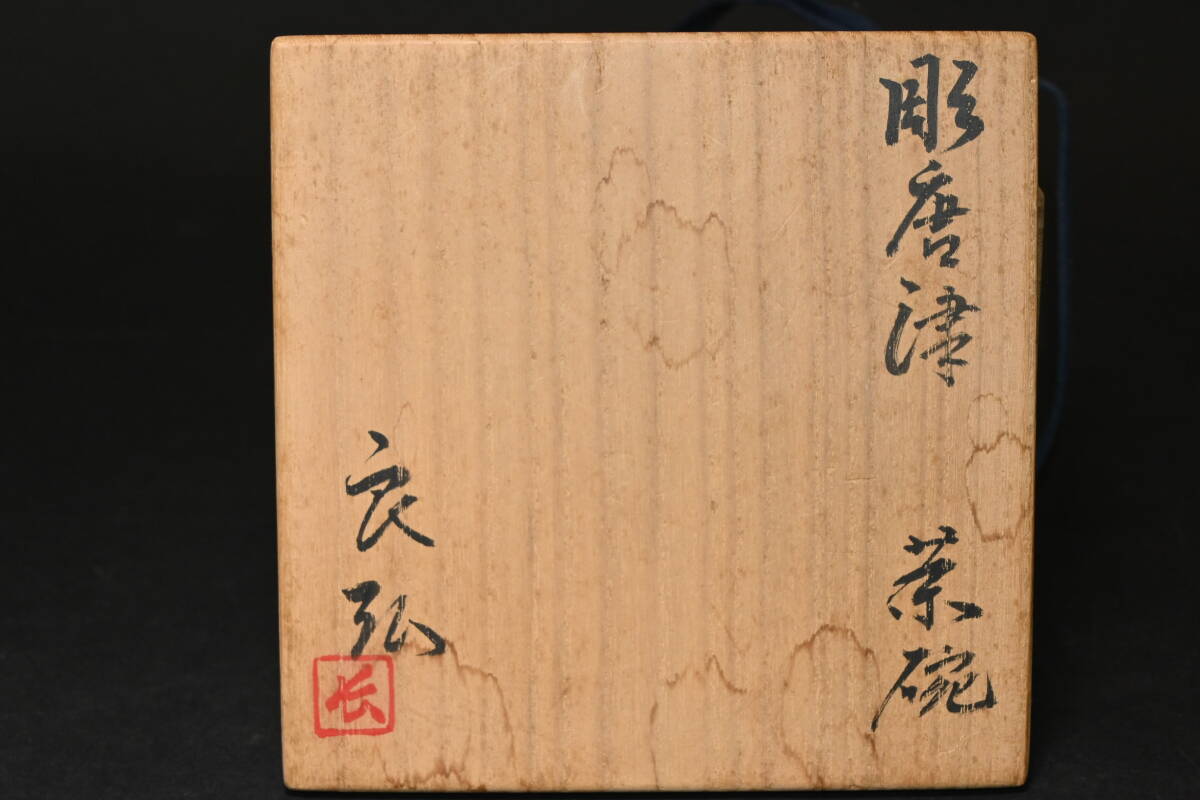 彫唐津 茶碗
良弘
长